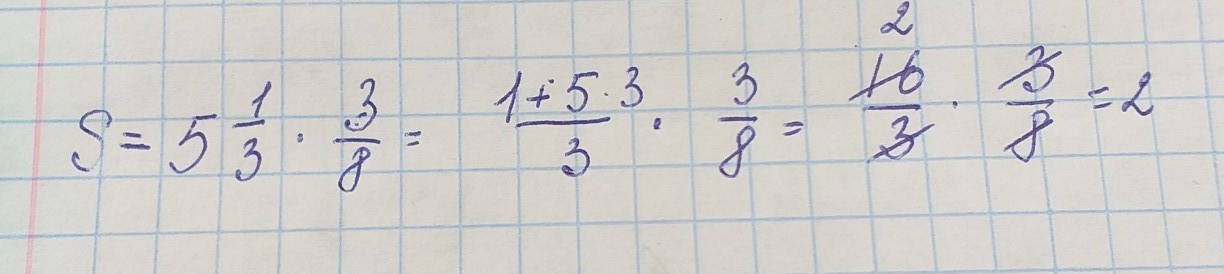 S = 5 1/3 · 3/8 = (1+5·3)/3 · 3/8 = 16/3 · 3/8 = 2
2